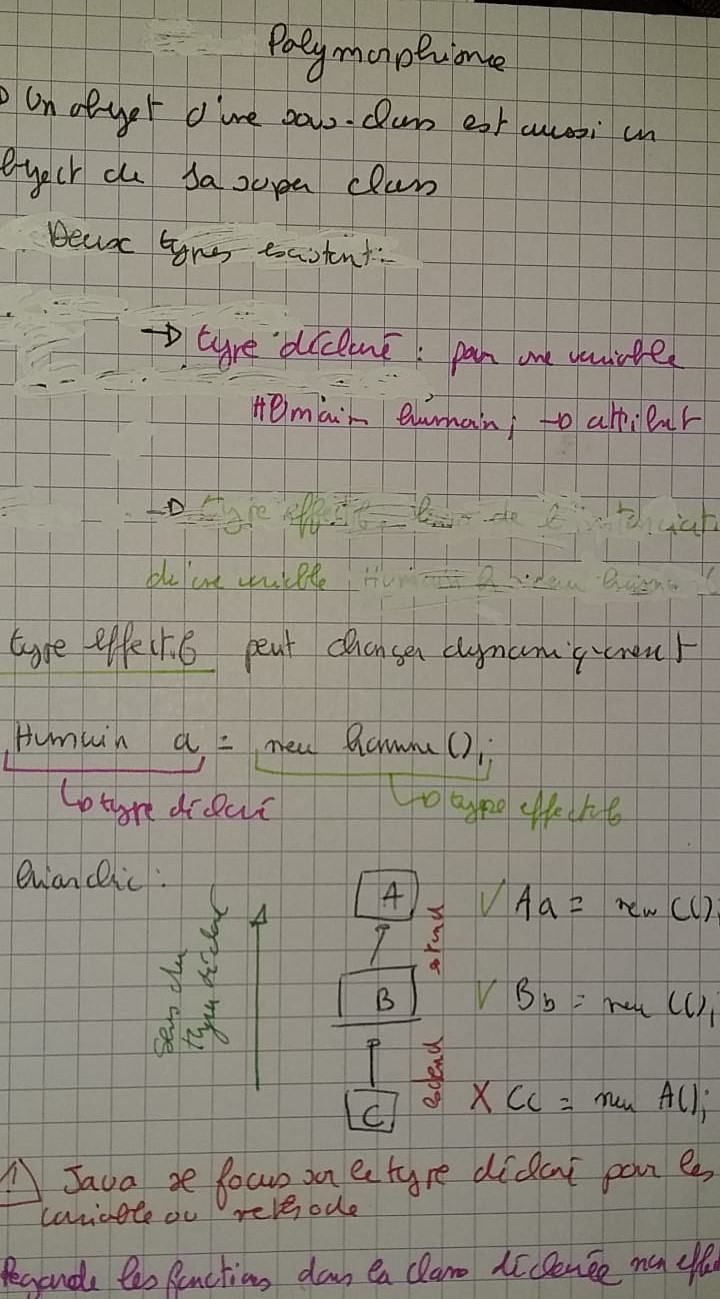 Polymorphisme
Un objet d'une sous-class est aussi un
object de sa super class
Deux types existent:
→ type déclaré : pour une variable
Humain humain; → attribut
→ type effectif lors de l'instanciat
d'une variable Humain humain
type effectif peut changer dynamiquement
Humain a = new homme();
↳ type déclaré ↳ type effectif
hiarchie :
Sens du
type déclaré
A
extend
B
extend
C
V A a = new C();
V B b = new C();
X C c = new A();
Java se focus sur le type déclaré pour les
variable ou méthode
Regarde les fonctions dans la class déclarée non effec